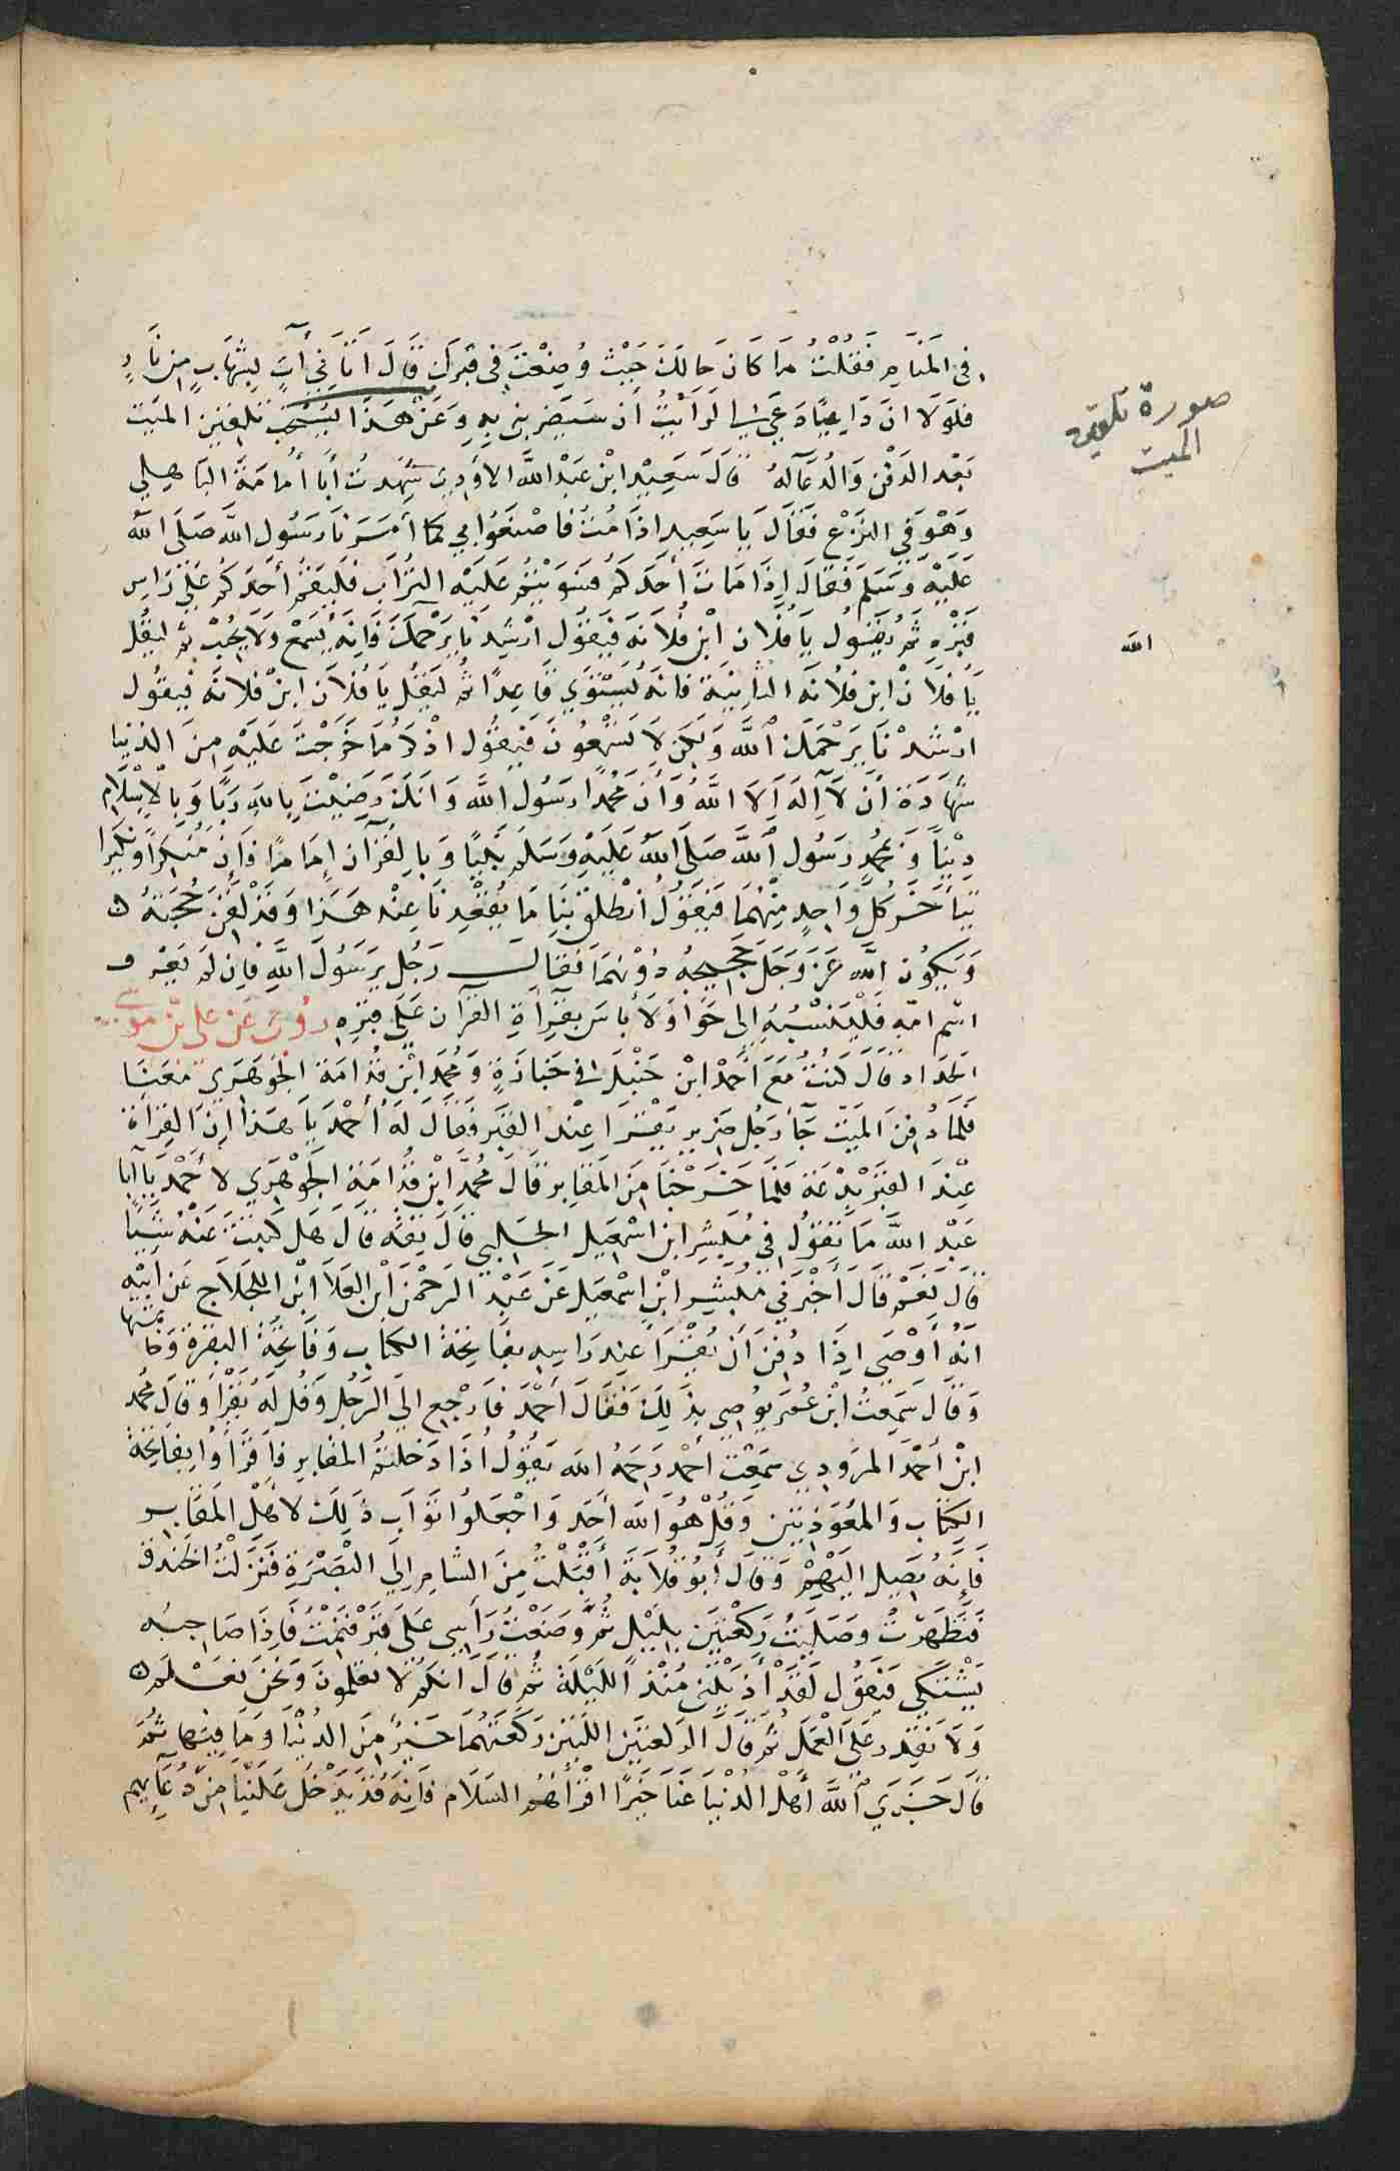 في المنام فقلت ما كان حالك حيث وضعت في قبرك قال اتاني آت بشهاب من نار
فلولا ان داعيا دعى لي لرأيت أن سيضربني به وعن هذا يستحب تلقين الميت
بعد الدفن والدعآ له قال سعيد ابن عبد الله الاودي شهدت أبا أمامة الباهلي
وهو في النزع فقال يا سعيد اذا مت فاصنعوا بي كما أمرنا رسول الله صلى الله
عليه وسلم فقال إذا مات أحدكم فسويتم عليه التراب فليقم أحدكم على راس
قبره ثم يقول يا فلان ابن فلانة فيقول ارشدنا يرحمك فانه يسمع ولا يجيب ثم ليقل
يا فلان ابن فلانة الثانية فانه يستوي قاعدا ثم ليقل يا فلان ابن فلانة فيقول
ارشدنا يرحمك الله ولكن لا تسمعون فيقول اذكر ما خرجت عليه من الدنيا
شهادة أن لا آله الا الله وأن محمدا رسول الله وانك رضيت بالله ربا وبالاسلام
دينا وبمحمد رسول الله صلى الله عليه وسلم نبيا وبالقرآن إماما فإن منكرا ونكيرا
يتأخر كل واحد منهما فيقول أنطلق بنا ما يقعدنا عند هذا وقد لقن حجته
ويكون الله عز وجل حجيجه دونهما فقال رجل يرسول الله فإن لم يعرف
اسم امه فلينسبه إلى حوا ولا بأس بقرآة القرآن على قبره روي عن علي بن موسى
الحداد قال كنت مع أحمد ابن حنبل في جنازة ومحمد ابن قدامة الجوهري معنا
فلما دفن الميت جآء رجل ضرير يقرا عند القبر فقال له أحمد يا هذا إن القرأة
عند القبر بدعة فلما خرجنا من المقابر قال محمد ابن قدامة الجوهري لأحمد يآ ابا
عبد الله ما تقول في مبشر ابن اسمعيل الحلبي قال ثقة قال هل كتبت عنه شيا
قال نعم قال أخبرني مبشر ابن اسمعيل عن عبد الرحمن ابن العلا ابن اللجلاج عن ابيه
انه أوصى إذا دفن أن يقرأ عند راسه بفاتحة الكتاب وفاتحة البقرة وخاتمتها
وقال سمعت ابن عمر يوصي بذلك فقال أحمد فارجع الى الرجل وقل له يقرأ وقال محمد
ابن أحمد المرودي سمعت أحمد رحمه الله يقول اذا دخلتم المقابر فاقرأوا بفاتحة
الكتاب والمعوذتين وقل هو الله أحد واجعلوا ثواب ذلك لأهل المقابر
فإنه يصل اليهم وقال أبو قلابة أقبلت من الشام إلى البصرة فنزلت الخندق
فتطهرت وصليت ركعتين بليل ثم وضعت رأسي على قبر فنمت فاذا صاحبه
يشتكي فيقول لقد أذيتني منذ الليلة ثم قال انكم لا تعلمون ونحن نعلم
ولا نقدر على العمل ثم قال الركعتين اللتين ركعتهما خير من الدنيا وما فيها ثم
قال جزى الله أهل الدنيا عنا خيرا اقرأهم السلام فإنه قد يدخل علينا من دعآيهم
صورة تلقين
الميت
الله